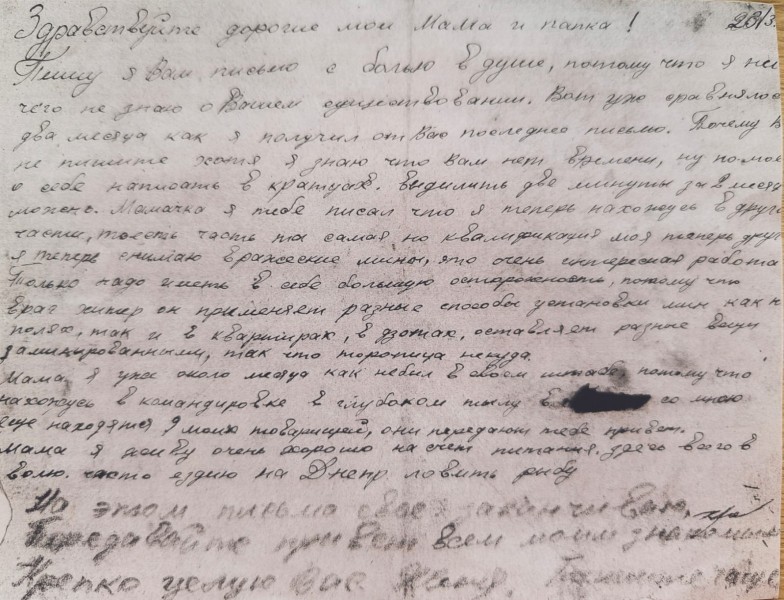 Здравствуйте дорогие мои Мама и папка!
Пишу я Вам письмо с болью в душе, потому что я ни
чего не знаю о Вашем существовании. Вот уже сравнялос
два месяца как я получил от Вас последнее письмо. Почему В
не пишите хотя я знаю что Вам нет времени, ну по-мое
о себе написать в кратцах. выдилить две минуты за 2 меся
можно. Мамачка я тебе писал что я теперь нахожусь в друг
части, тоесть часть та самая но квалификация моя теперь друг
я теперь снимаю вражеские мины, это очень интересная работа
Только надо иметь в себе большую осторожность, потому что
враг хитер он применяет разные способы установки мин как н
полях, так и в квартирах, в дзотах, оставляет разные вещи
заминированными, так что торопица некуда.
Мама я уже около месяца как небыл в своем штабе, потому что
нахожусь в командировке в глубоком тылу со мною
еще находятся моих товарищей, они передают тебе привет.
Мама я живу очень хорошо на счет питания. здесь всего в
волю. часто ездию на Днепр ловить рыбу
На этом письмо свое заканчиваю.
Передавайте привет всем моим знакомым
Крепко целую Вас Женя.